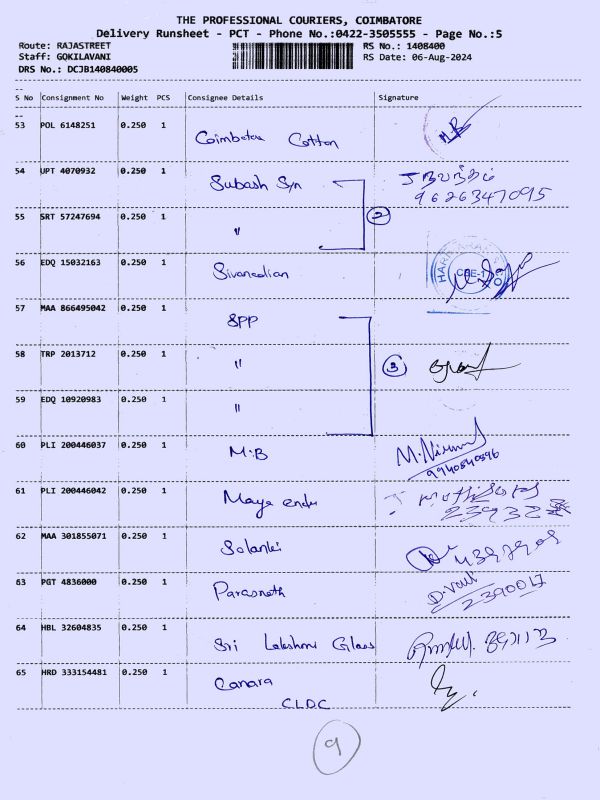 THE PROFESSIONAL COURIERS, COIMBATORE
Delivery Runsheet - PCT - Phone No.:0422-3505555 - Page No.:5
Route: RAJASTREET RS No.: 1408400
Staff: GOKILAVANI RS Date: 06-Aug-2024
DRS No.: DCJB140840005
--
S No Consignment No Weight PCS Consignee Details Signature
--
53 POL 6148251 0.250 1 Coimbatore Cotton
54 UPT 4070932 0.250 1 Subash Syn
9626347095
55 SRT 57247694 0.250 1 " 2
56 EDQ 15032163 0.250 1
57 MAA 866495042 0.250 1 SPP
58 TRP 2013712 0.250 1 " 3
59 EDQ 10920983 0.250 1 "
60 PLI 200446037 0.250 1 M.B
61 PLI 200446042 0.250 1 Maya
62 MAA 301855071 0.250 1 Solanki
63 PGT 4836000 0.250 1 Parasnath
2390017
64 HBL 32604835 0.250 1 Sri Lakshmi Glass
65 HRD 333154481 0.250 1 Canara
CLDC
9